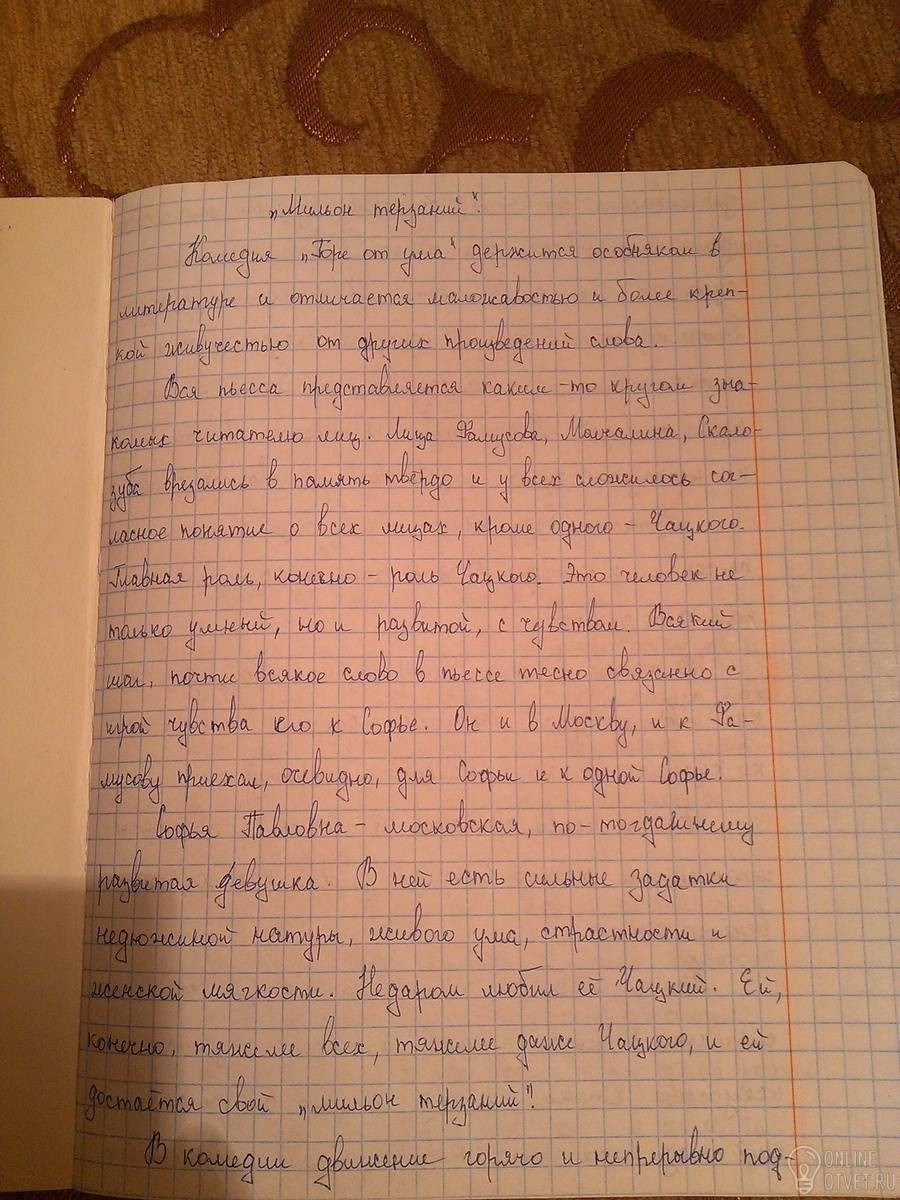 „Мильон терзаний".
Комедия „Горе от ума" держится особняком в
литературе и отличается моложавостью и более креп-
кой живучестью от других произведений слова.
Вся пьесса представляется каким-то кругом зна-
комых читателю лиц. Лица Фамусова, Молчалина, Скало-
зуба врезались в память твёрдо и у всех сложилось сог-
ласное понятие о всех лицах, кроме одного - Чацкого.
Главная роль, конечно - роль Чацкого. Это человек не
только умный, но и развитой, с чувством. Всякий
шаг, почти всякое слово в пьессе тесно связанно с
игрой чувства его к Софье. Он и в Москву, и к Фа-
мусову приехал, очевидно, для Софьи и к одной Софье.
Софья Павловна - московская, по-тогдашнему
развитая девушка. В ней есть сильные задатки
недюжиной натуры, живого ума, страстности и
женской мягкости. Недаром любил её Чацкий. Ей,
конечно, тяжелее всех, тяжелее даже Чацкого, и ей
достаётся свой „мильон терзаний"!
В комедии движение горячо и непрерывно под-
ONLINE
OTVET.RU